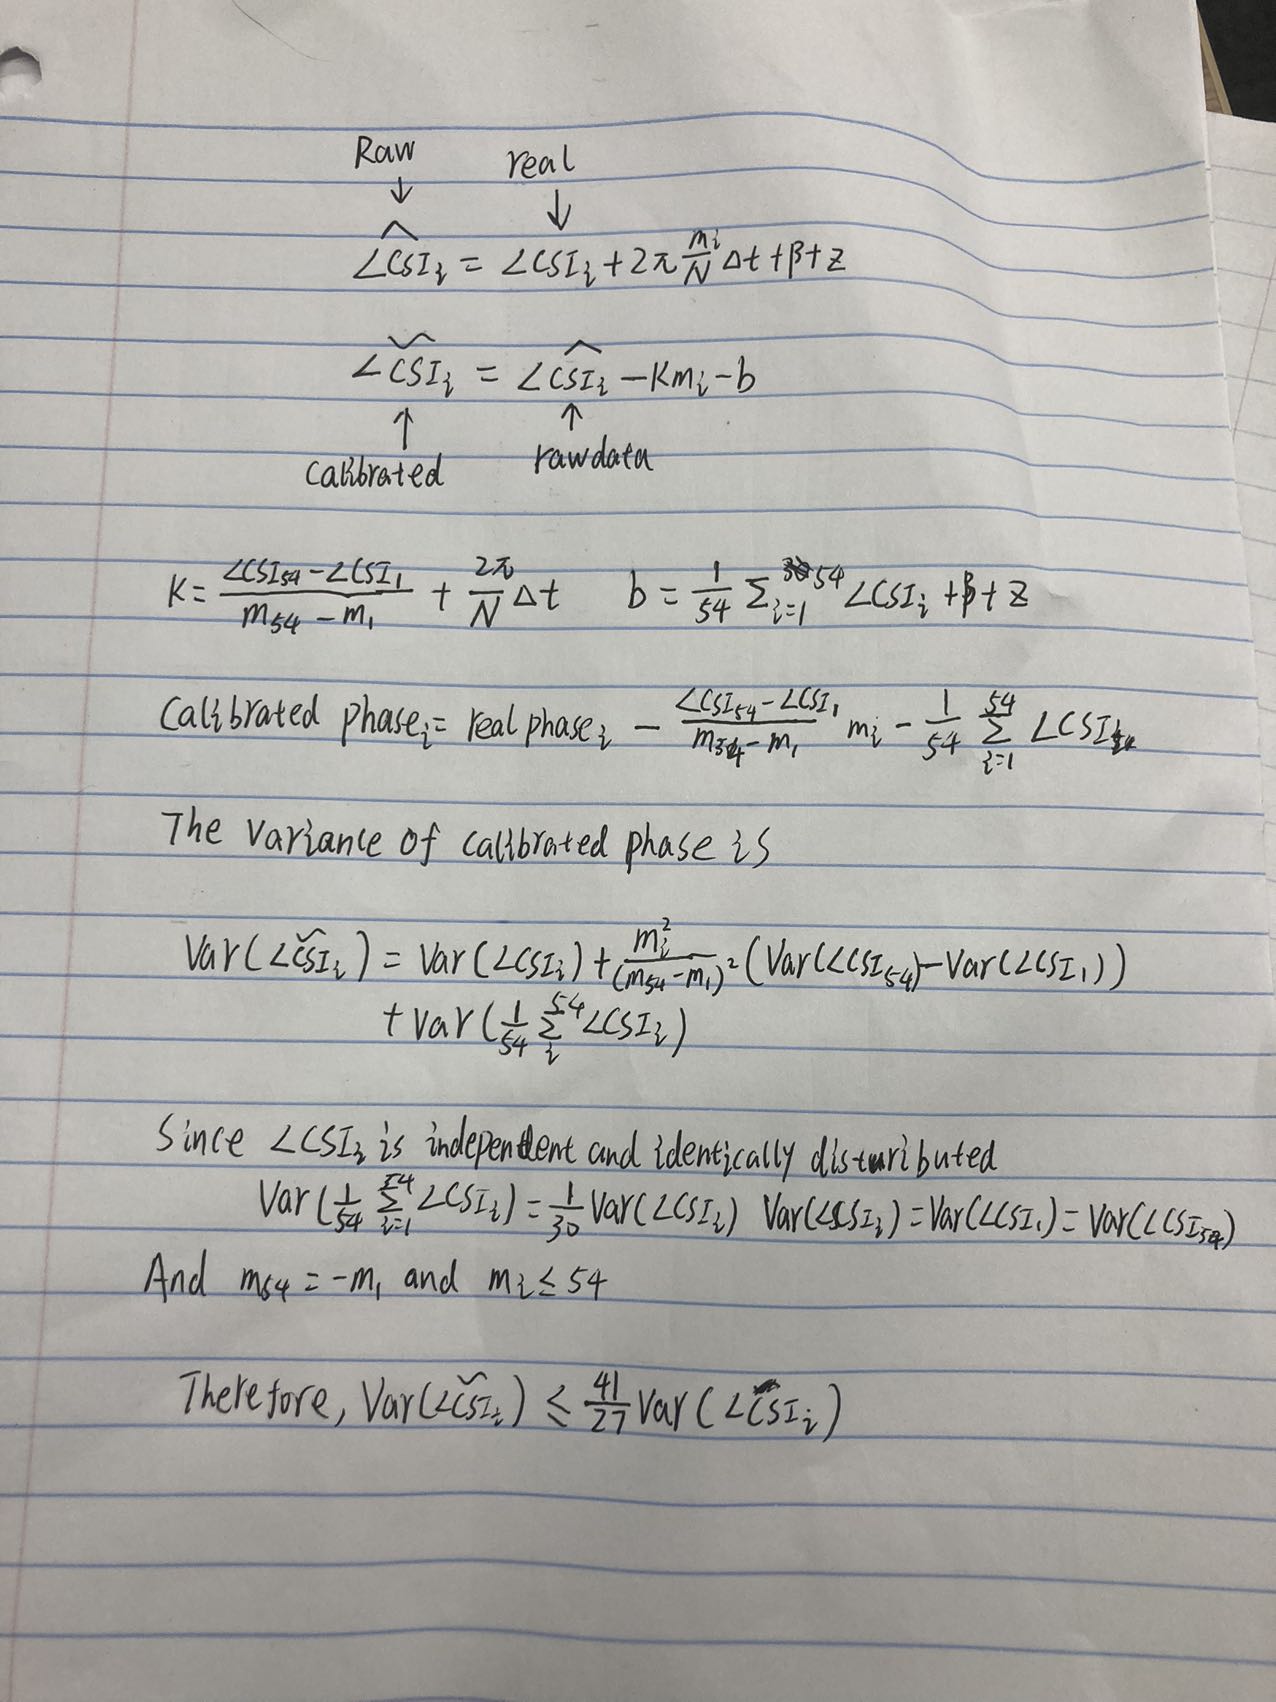 Raw real
↓ ↓
∠ĈSIᵢ = ∠CSIᵢ + 2π mᵢ/N Δt + β + z
∠C͝SIᵢ = ∠ĈSIᵢ − Kmᵢ − b
↑ ↑
calibrated rawdata
K = (∠CSI₅₄ − ∠CSI₁)/(m₅₄ − m₁) + 2π/N Δt b = 1/54 Σᵢ₌₁⁵⁴ ∠CSIᵢ + β + z
Calibrated phaseᵢ = real phaseᵢ − (∠CSI₅₄ − ∠CSI₁)/(m₅₄ − m₁) mᵢ − 1/54 Σᵢ₌₁⁵⁴ ∠CSIᵢ
The variance of calibrated phase is
Var(∠C͝SIᵢ) = Var(∠CSIᵢ) + mᵢ²/(m₅₄ − m₁)² (Var(∠CSI₅₄) − Var(∠CSI₁))
+ Var(1/54 Σᵢ⁵⁴ ∠CSIᵢ)
Since ∠CSIᵢ is independent and identically distuributed
Var(1/54 Σᵢ₌₁⁵⁴ ∠CSIᵢ) = 1/30 Var(∠CSIᵢ) Var(∠CSIᵢ) = Var(∠CSI₁) = Var(∠CSI₅₄)
And m₅₄ = −m₁ and mᵢ ≤ 54
Therefore, Var(∠C͝SIᵢ) ≤ 41/27 Var(∠CSIᵢ)